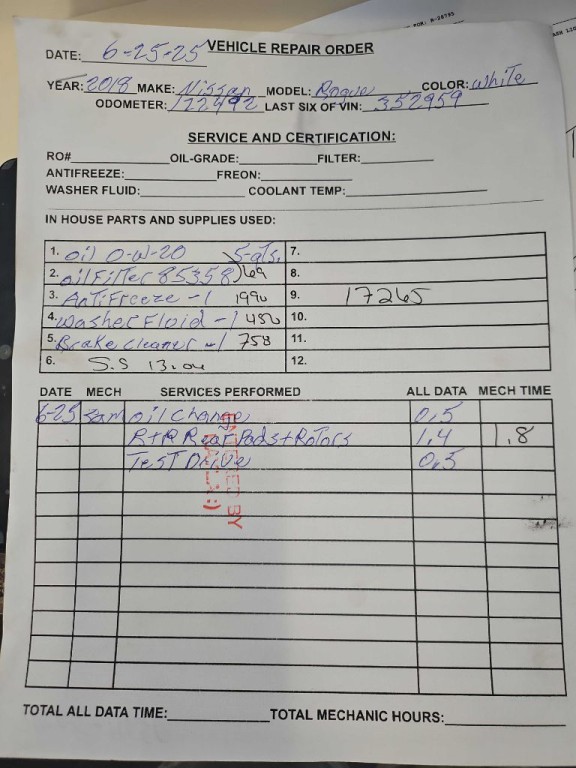 DATE: 6-25-25 VEHICLE REPAIR ORDER
YEAR: 2018 MAKE: Nissan MODEL: Rogue COLOR: White
ODOMETER: 122492 LAST SIX OF VIN: 352959
SERVICE AND CERTIFICATION:
RO# OIL-GRADE: FILTER:
ANTIFREEZE: FREON:
WASHER FLUID: COOLANT TEMP:
IN HOUSE PARTS AND SUPPLIES USED:
1. oil 0-W-20 5-qts. 7.
2. oil Filter 85358 8.
3. AnTiFreeze -1 1990 9. 17265
4. washer Fluid -1 450 10.
5. Brake cleaner -1 758 11.
6. S.S 13.04 12.
DATE MECH SERVICES PERFORMED ALL DATA MECH TIME
6-25 Sam oil change 0.5
R+R Rear Pads+Rotors 1.4 1.8
TesT Drive 0.5
ENTERED BY
:)
TOTAL ALL DATA TIME: TOTAL MECHANIC HOURS: